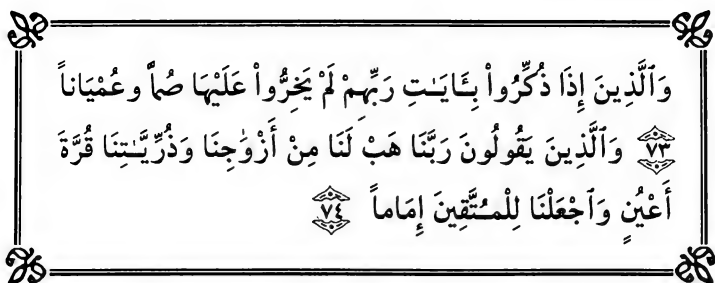 وَٱلَّذِينَ إِذَا ذُكِّرُوا۟ بِـَٔايَـٰتِ رَبِّهِمْ لَمْ يَخِرُّوا۟ عَلَيْهَا صُمّاً وعُمْيَاناً
﴿٧٣﴾ وَٱلَّذِينَ يَقُولُونَ رَبَّنَا هَبْ لَنَا مِنْ أَزْوَٰجِنَا وَذُرِّيَّـٰتِنَا قُرَّةَ
أَعْيُنٍ وَٱجْعَلْنَا لِلْمُتَّقِينَ إِمَاماً ﴿٧٤﴾